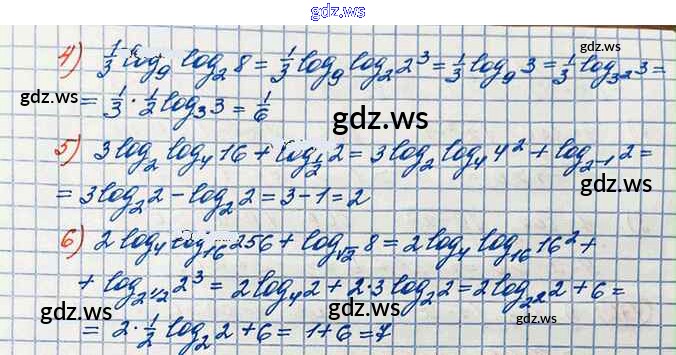 gdz.ws
4) 1/3 log₉ log₂ 8 = 1/3 log₉ log₂ 2³ = 1/3 log₉ 3 = 1/3 log₃² 3 =
gdz.ws
= 1/3 · 1/2 log₃ 3 = 1/6
gdz.ws
gdz.ws
5) 3 log₂ log₄ 16 + log_{1/2} 2 = 3 log₂ log₄ 4² + log_{2⁻¹} 2 =
gdz.ws
= 3 log₂ 2 − log₂ 2 = 3 − 1 = 2
6) 2 log₄ log₁₆ 256 + log_{√2} 8 = 2 log₄ log₁₆ 16² +
gdz.ws
+ log_{2^{1/2}} 2³ = 2 log₄ 2 + 2·3 log₂ 2 = 2 log_{2²} 2 + 6 =
gdz.ws
gdz.ws
= 2 · 1/2 log₂ 2 + 6 = 1 + 6 = 7
gdz.ws